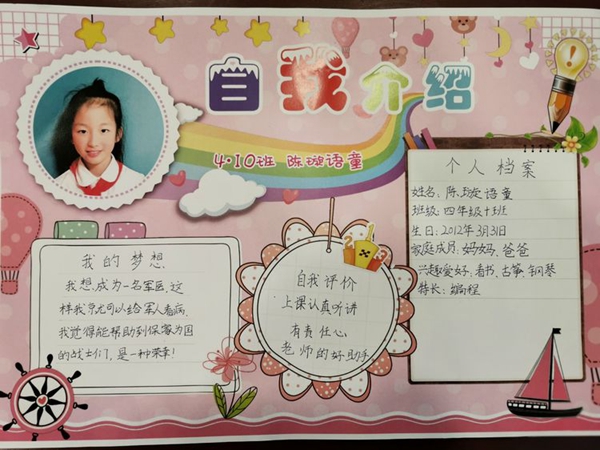 自我介绍
4·10班 陈璇语童
我的梦想
我想成为一名军医,这
样我就可以给军人看病.
我觉得能帮助到保家为国
的战士们,是一种荣幸!
自我评价
上课认真听讲
有责任心
老师的好助手
个人档案
姓名:陈璇语童
班级:四年级十班
生日:2012年3月31日
家庭成员:妈妈、爸爸
兴趣爱好:看书、古筝、钢琴
特长:编程